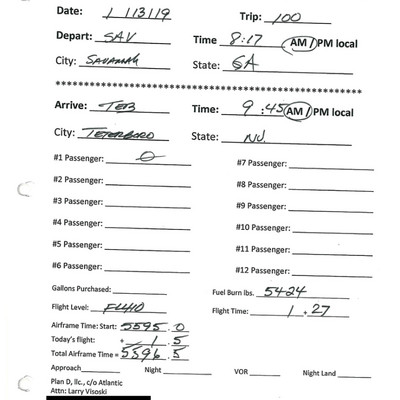 Date: 1/13/19 Trip: 100
Depart: SAV Time 8:17 AM/PM local
City: SAVANNAH State: GA
Arrive: TEB Time: 9:45 AM/PM local
City: TETERBORO State: NJ
#1 Passenger: 0 #7 Passenger:
#2 Passenger: #8 Passenger:
#3 Passenger: #9 Passenger:
#4 Passenger: #10 Passenger:
#5 Passenger: #11 Passenger:
#6 Passenger: #12 Passenger:
Gallons Purchased: Fuel Burn lbs. 5424
Flight Level: FL410 Flight Time: 1.27
Airframe Time: Start: 5595.0
Today's flight: + 1.5
Total Airframe Time = 5596.5
Approach Night VOR Night Land
Plan D, llc., c/o Atlantic
Attn: Larry Visoski